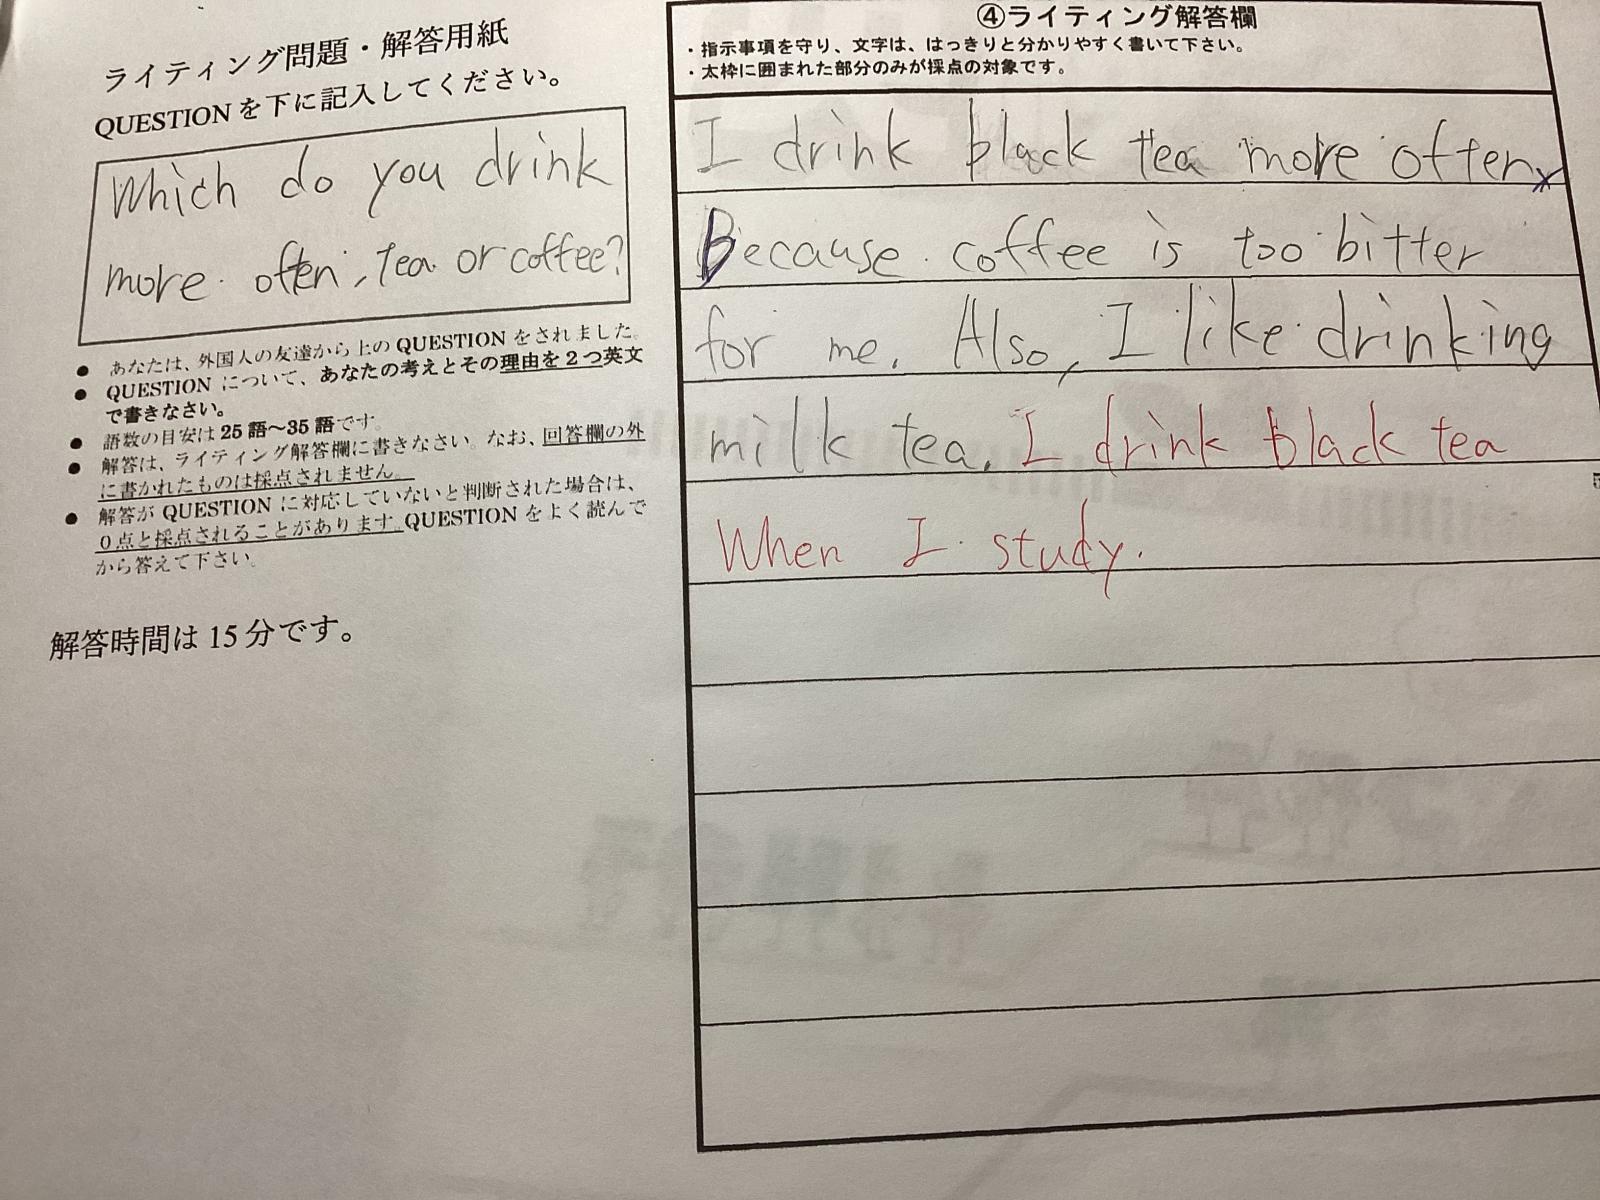 ライティング問題・解答用紙
QUESTIONを下に記入してください。
Which do you drink
more often, tea or coffee?
● あなたは、外国人の友達から上のQUESTIONをされました。
● QUESTIONについて、あなたの考えとその理由を2つ英文
で書きなさい。
● 語数の目安は25語～35語です。
● 解答は、ライティング解答欄に書きなさい。なお、回答欄の外
に書かれたものは採点されません。
● 解答がQUESTIONに対応していないと判断された場合は、
0点と採点されることがあります。QUESTIONをよく読んで
から答えて下さい。
解答時間は15分です。
④ライティング解答欄
・指示事項を守り、文字は、はっきりと分かりやすく書いて下さい。
・太枠に囲まれた部分のみが採点の対象です。
I drink black tea more often
Because coffee is too bitter
for me. Also, I like drinking
milk tea. I drink black tea
When I study.